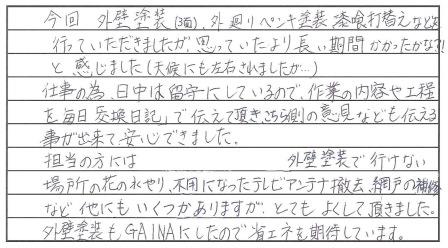 今回 外壁塗装(3面)、外廻りペンキ塗装、漆喰打替えなどを
行っていただきましたが、思っていたより長い期間かかったかな?!
と感じました(天候にも左右されましたが…)
仕事の為、日中は留守にしているので、作業の内容や工程
を毎日「交換日記」で伝えて頂き、こちら側の意見なども伝える
事が出来て安心できました.
担当の方には 外壁塗装で行けない
場所の花の水やり、不用になったテレビアンテナ撤去、網戸の補修
など 他にもいくつかありますが、とてもよくして頂きました。
外壁塗装も、GAINAにしたので省エネを期待しています。